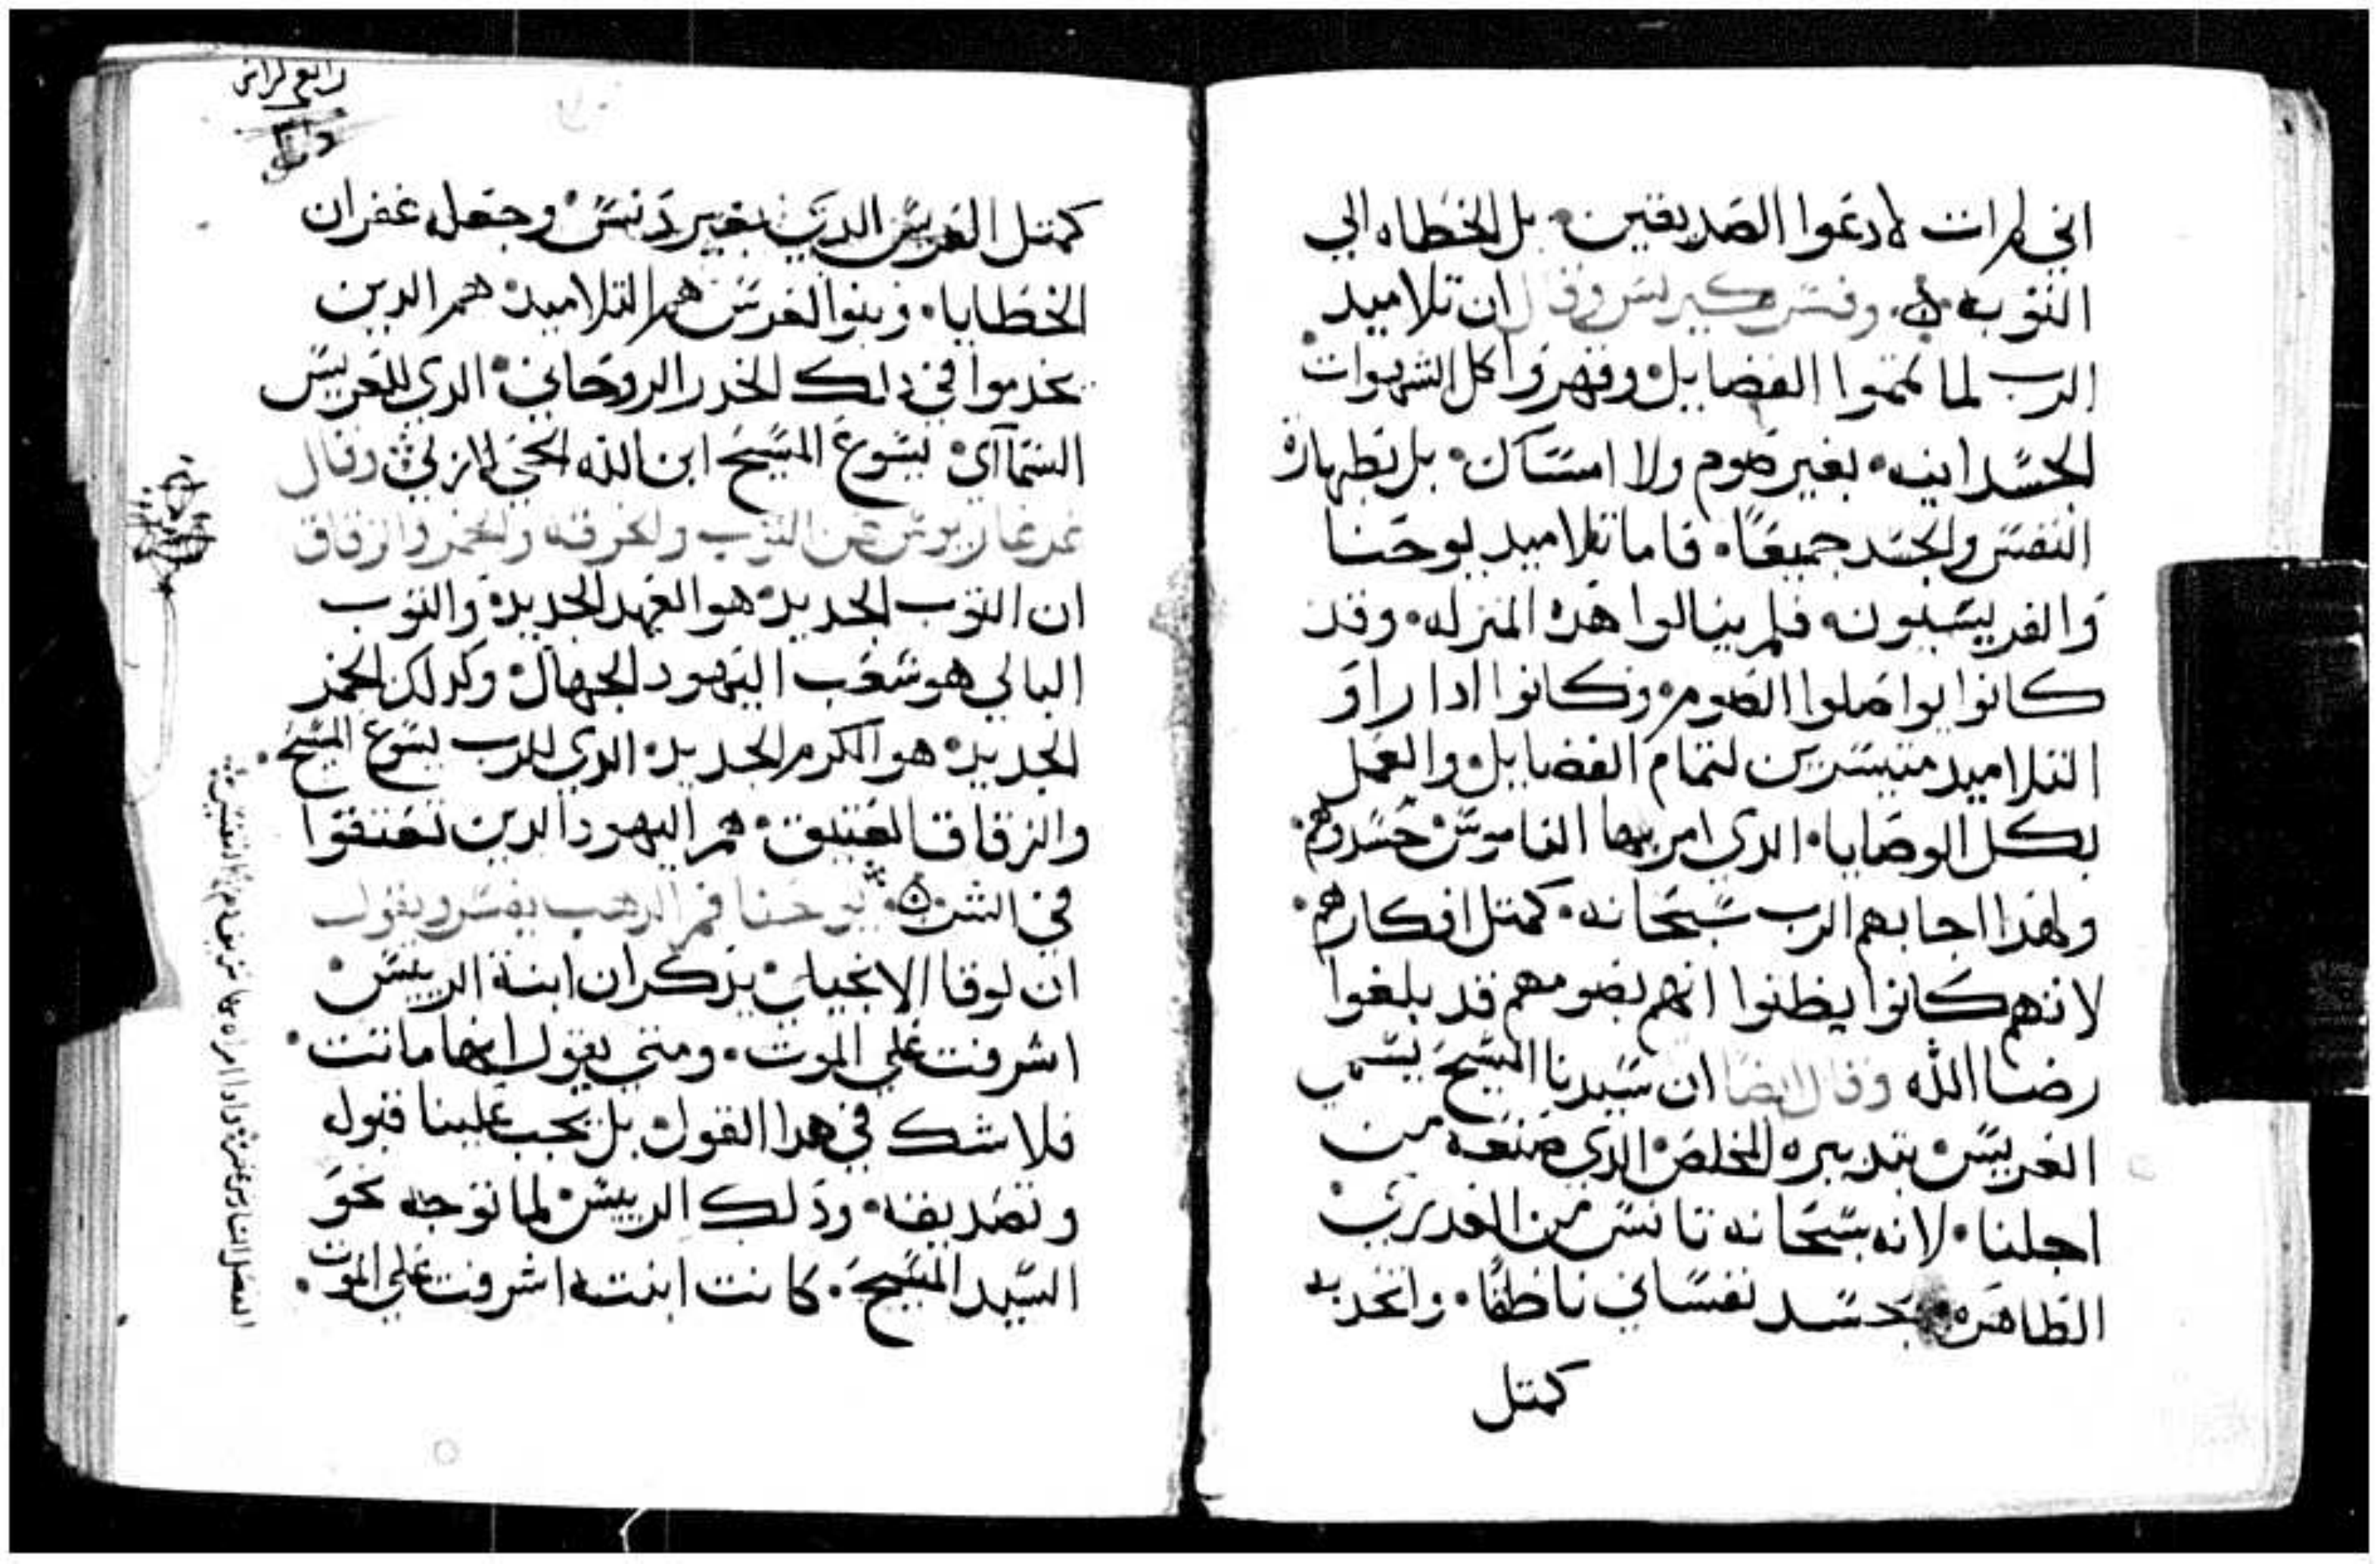 اني لم ات لادعوا الصديقين. بل الخطاه الي
التوبه. وفسر كيرلس وقال ان تلاميد
الرب لما تمموا الفضايل وقهروا كل الشهوات
الجسدانيه. بغير صوم ولا امساك. بل بطهارة
النفس والجسد جميعًا. فاما تلاميد يوحنا
والفريسيون فلم ينالوا هذه المنزله. وقد
كانوا يواصلوا الصوم. وكانوا ادا راو
التلاميد متيسرين لتمام الفضايل والعمل
بكل الوصايا. الدي امر بها الناموس حسدوهم.
ولهذا اجابهم الرب سبحانه. كمتل افكارهم.
لانهم كانوا يظنوا انهم بصومهم قد بلغوا
رضا الله وقال ايضًا ان سيدنا المسيح يسمي
العريس بتدبيره المخلص الدي صنعه من
اجلنا. لانه سبحانه تانس من العدري
الطاهره بجسد نفساني ناطقًا. واتحد به
كمتل
رابع كراس
كمتل العريس الدي بغير دنس. وجعل غفران
الخطايا. وبنوا العرس هم التلاميد. هم الدين
يخدموا في دلك الخدر الروحاني. الدي للعريس
السماآي. يسوع المسيح ابن الله الحي الازلي وقال
عن التوب والخرقه والخمر والزقاق
ان التوب الجديد. هو العهد الجديد. والتوب
البالي هو شعب اليهود الجهال. وكدلك الخمر
الجديد. هو الكرم الجديد. الدي للرب يسوع المسيح.
والزقاق العتيق. هم اليهود الدين تعتقوا
في الشر. يوحنا فم الدهب يفسر ويقول
ان لوقا الانجيلي يذكر ان ابنة الرييس.
اشرفت علي الموت. ومتي يقول انها ماتت.
فلا شك في هدا القول. بل يجب علينا قبول
وتصديقه. ودلك الرييس لما توجه نحو
السيد المسيح. كانت ابنته اشرفت علي الموت.